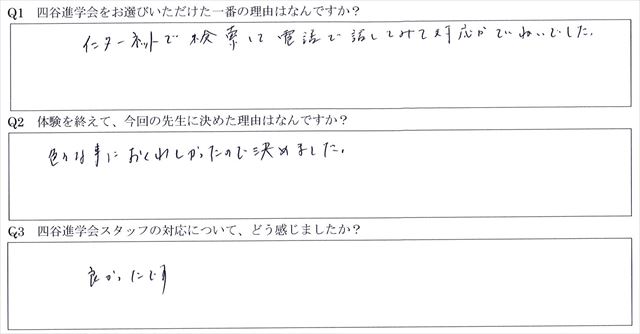 Q1 四谷進学会をお選びいただけた一番の理由はなんですか?
インターネットで検索して電話で話してみて対応がていねいでした。
Q2 体験を終えて、今回の先生に決めた理由はなんですか?
色々な事におくわしかったので決めました。
Q3 四谷進学会スタッフの対応について、どう感じましたか?
良かったです